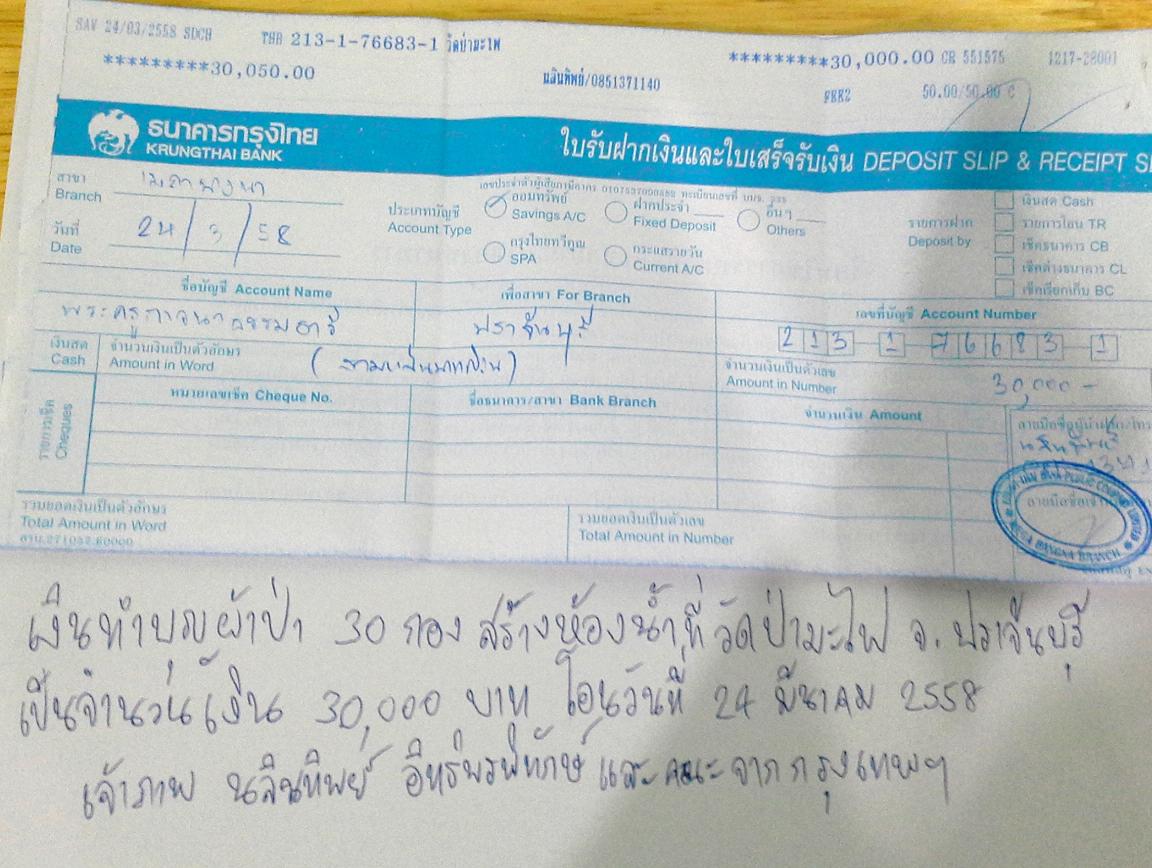 SAV 24/03/2558 SDCH THB 213-1-76683-1 วัดป่ามะไฟ *********30,000.00 CR 551575 1217-28001
*********30,050.00 นลินทิพย์/0851371140 FRR2 50.00/50.00 C
ธนาคารกรุงไทย
KRUNGTHAI BANK
ใบรับฝากเงินและใบเสร็จรับเงิน DEPOSIT SLIP & RECEIPT
สาขา
Branch เมกาบางนา
วันที่
Date 24/3/58
เลขประจำตัวผู้เสียภาษีอากร 0107537000882 ทะเบียนเลขที่ บมจ. 335
ประเภทบัญชี
Account Type
ออมทรัพย์
Savings A/C
ฝากประจำ
Fixed Deposit
อื่นๆ
Others
กรุงไทยทวีคูณ
SPA
กระแสรายวัน
Current A/C
รายการฝาก
Deposit by
เงินสด Cash
รายการโอน TR
เช็คธนาคาร CB
เช็คต่างธนาคาร CL
เช็คเรียกเก็บ BC
ชื่อบัญชี Account Name
เพื่อสาขา For Branch
เลขที่บัญชี Account Number
พระครูกาจนาธรรมธารี
ปราจีนบุรี
213 1 76683 1
เงินสด
Cash
จำนวนเงินเป็นตัวอักษร
Amount in Word
(สามหมื่นบาทถ้วน)
จำนวนเงินเป็นตัวเลข
Amount in Number
30,000 -
รายการเช็ค
Cheques
หมายเลขเช็ค Cheque No.
ชื่อธนาคาร/สาขา Bank Branch
จำนวนเงิน Amount
นลินทิพย์
รวมยอดเงินเป็นตัวอักษร
Total Amount in Word
รวมยอดเงินเป็นตัวเลข
Total Amount in Number
MEGA BANGNA BRANCH
เงินทำบุญผ้าป่า 30 กอง สร้างห้องน้ำ ที่ วัดป่ามะไฟ จ. ปราจีนบุรี
เป็นจำนวนเงิน 30,000 บาท โอนวันที่ 24 มีนาคม 2558
เจ้าภาพ นลินทิพย์ อิทธิ์พรพิทักษ์ และคณะจากกรุงเทพฯ